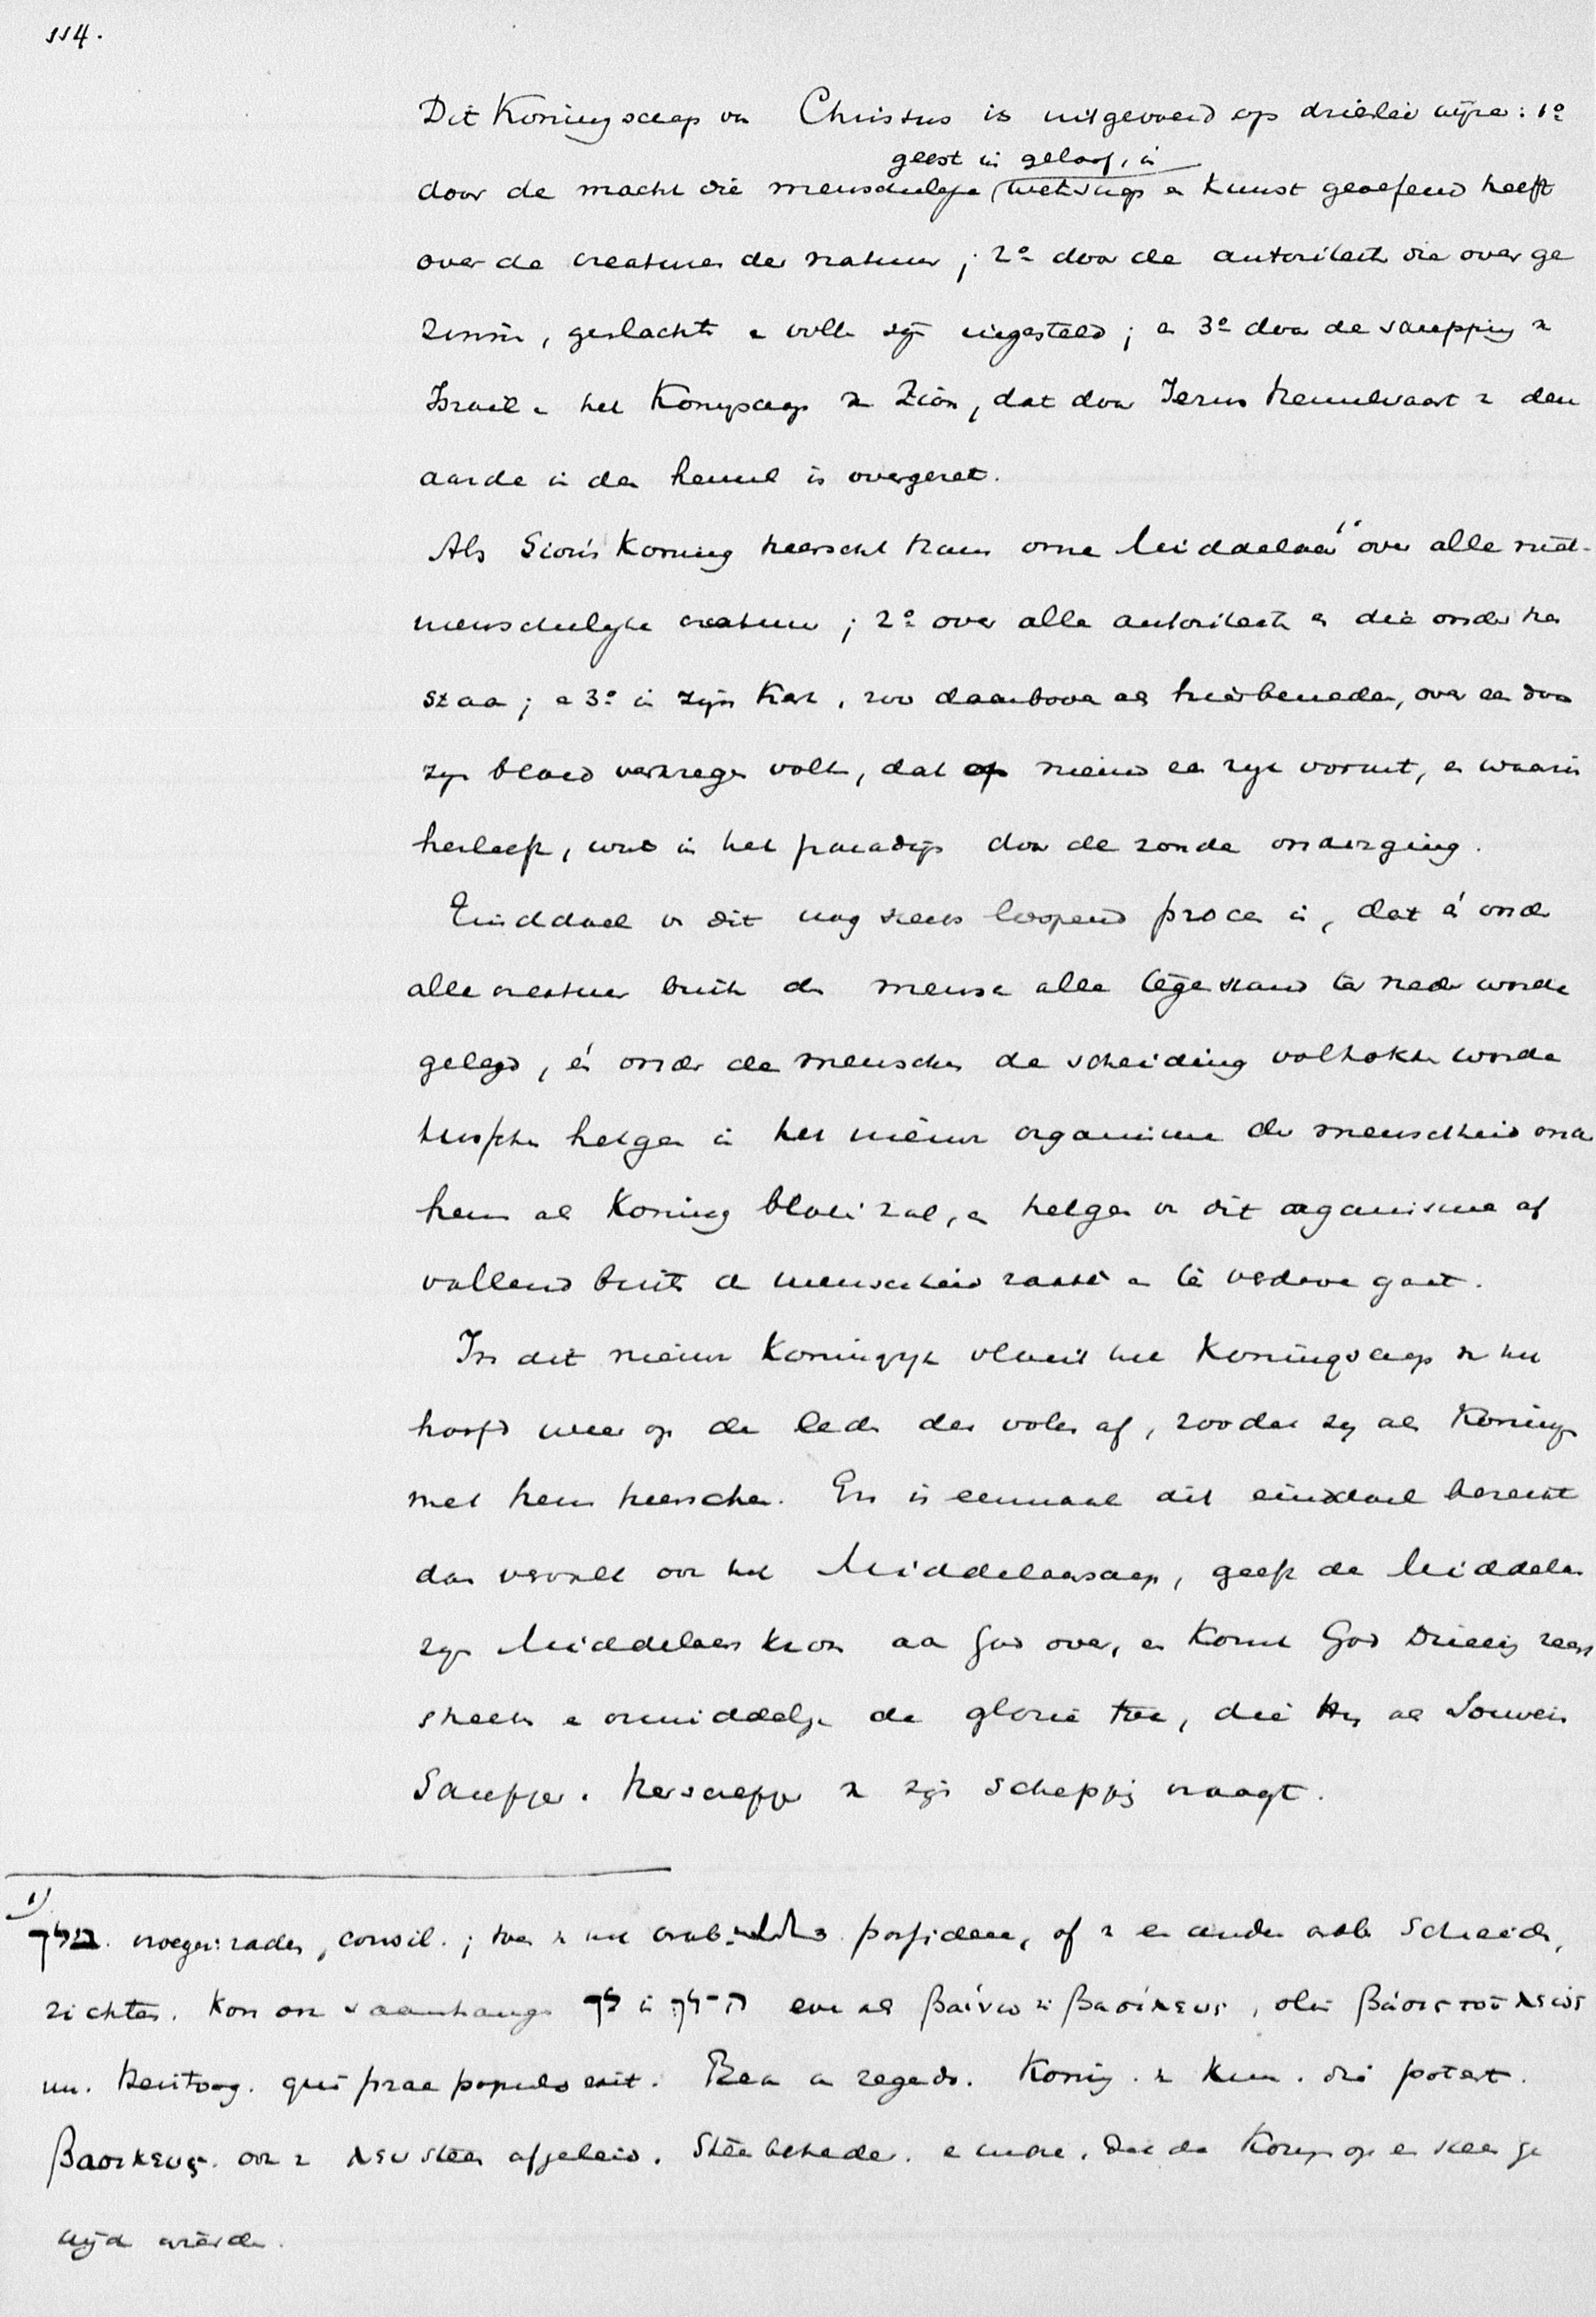 114.
Dit Koningscap vn Christus is uitgevoerd op drieërlei wijze: 1º
geest in geloof, in
door de macht die menschelyke wetscap en Kunst geoefend heeft
over de creaturen der natuur; 2º door de autoriteiten die over ge
zinnen, geslachten en volk zijn ingesteld; en 3º door de schepping v
Israel en het Koningscap v Zion, dat door Jezus hemelvaart v den
aarde in den hemel is overgezet.
Als Sion's Koning heerscht thans onze Middelaar 1º over alle niet-
menschelyke creatuur; 2º over alle autoriteiten en die onder hen
staan; en 3º in zijn Kerk, zoo daarboven als hierbeneden, over een door
zijn bloed verkregen volk, dat op nieuw een ryk vormt, en waarin
herleeft, wat in het paradijs door de zonde onderging.
Einddoel vn dit nog steeds loopend proces is, dat én onder
alle creatuur buiten den mensch alle tegenstand ter neder worde
gelegd, én onder de menschen de scheiding voltrokken worde
tusschen hetgeen in het nieuwe organisme der menschheid onder
hem als Koning bloeien zal, en hetgeen vn dit organisme af
vallend buiten de menschheid raakt en te verderve gaat.
In dit nieuwe Koninkryk vloeit het Koningscap v het
hoofd weer op de leden des volks af, zoodat zy als Koningen
met hem heerschen. En is eenmaal dit einddoel bereikt
dan vervalt ook het Middelaarscap, geeft de Middelaar
zyn Middelaars kroon aan God over, en komt God Drieenig rechts
streeks en onmiddelyk de glorie toe, die Hy als Souverein
Schepper en Herschepper v zijn schepping vraagt.
1)
מלך. vroeger: raden, consil.; possidere, of v een ander scheiden,
richten. Kon ook samenhangen לך in הלך even als βαίνω in βασιλευς, olim βάσις τοῦ λεως
nu. Hertog. qui prae populo exit. Rex a regendo. Koning v kunnen. die potest.
βασιλευς. ook v λευ steen afgeleid. Steenbekleeder. en andere. dat de Koning op een steen ge
wijd werden.